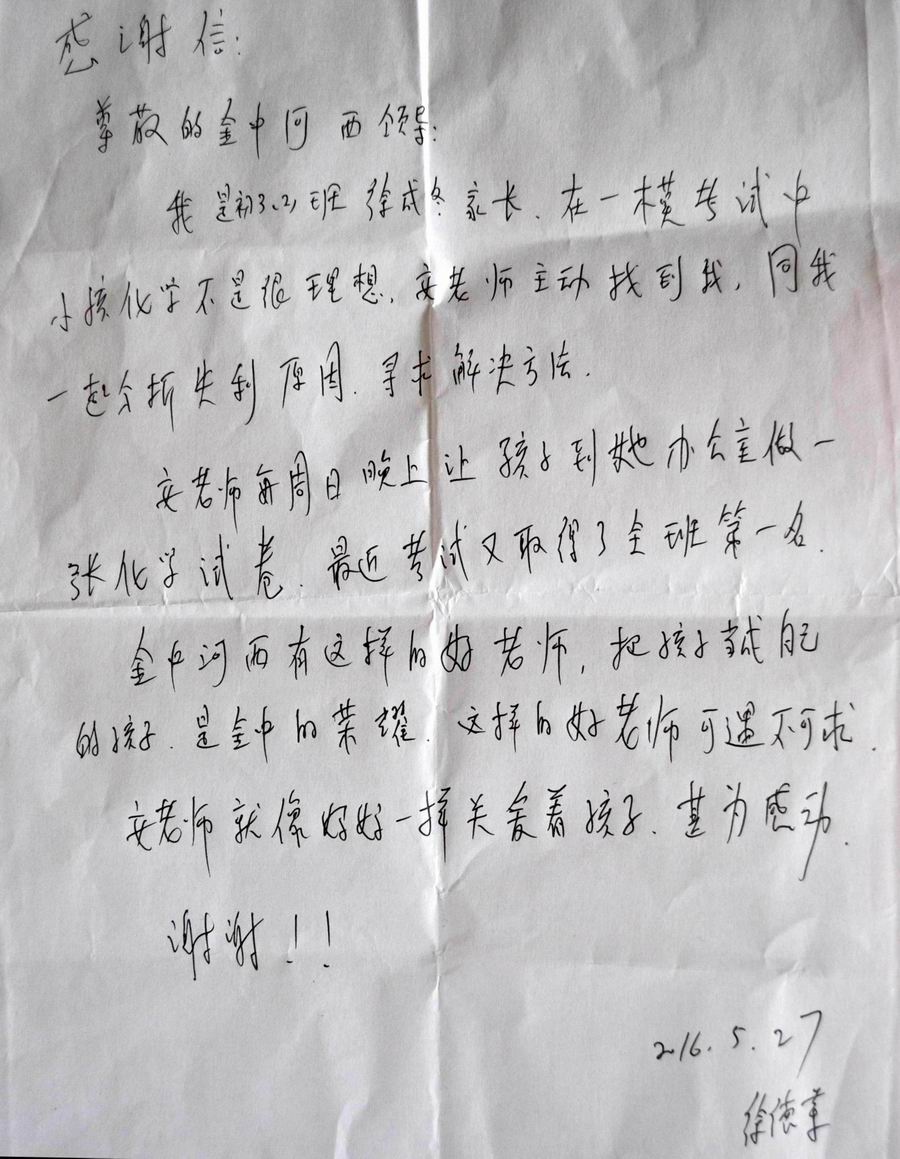 感谢信:
尊敬的金中河西领导:
我是初3.2)班徐成冬家长.在一模考试中
小孩化学不是很理想.安老师主动找到我,同我
一起分析失利原因.寻求解决方法.
安老师每周日晚上让孩子到她办公室做一
张化学试卷.最近考试又取得了全班第一名.
金中河西有这样的好老师,把孩子当成自己
的孩子.是金中的荣耀.这样的好老师可遇不可求.
安老师就像妈妈一样关爱着孩子.甚为感动.
谢谢!!
2016.5.27
徐德革